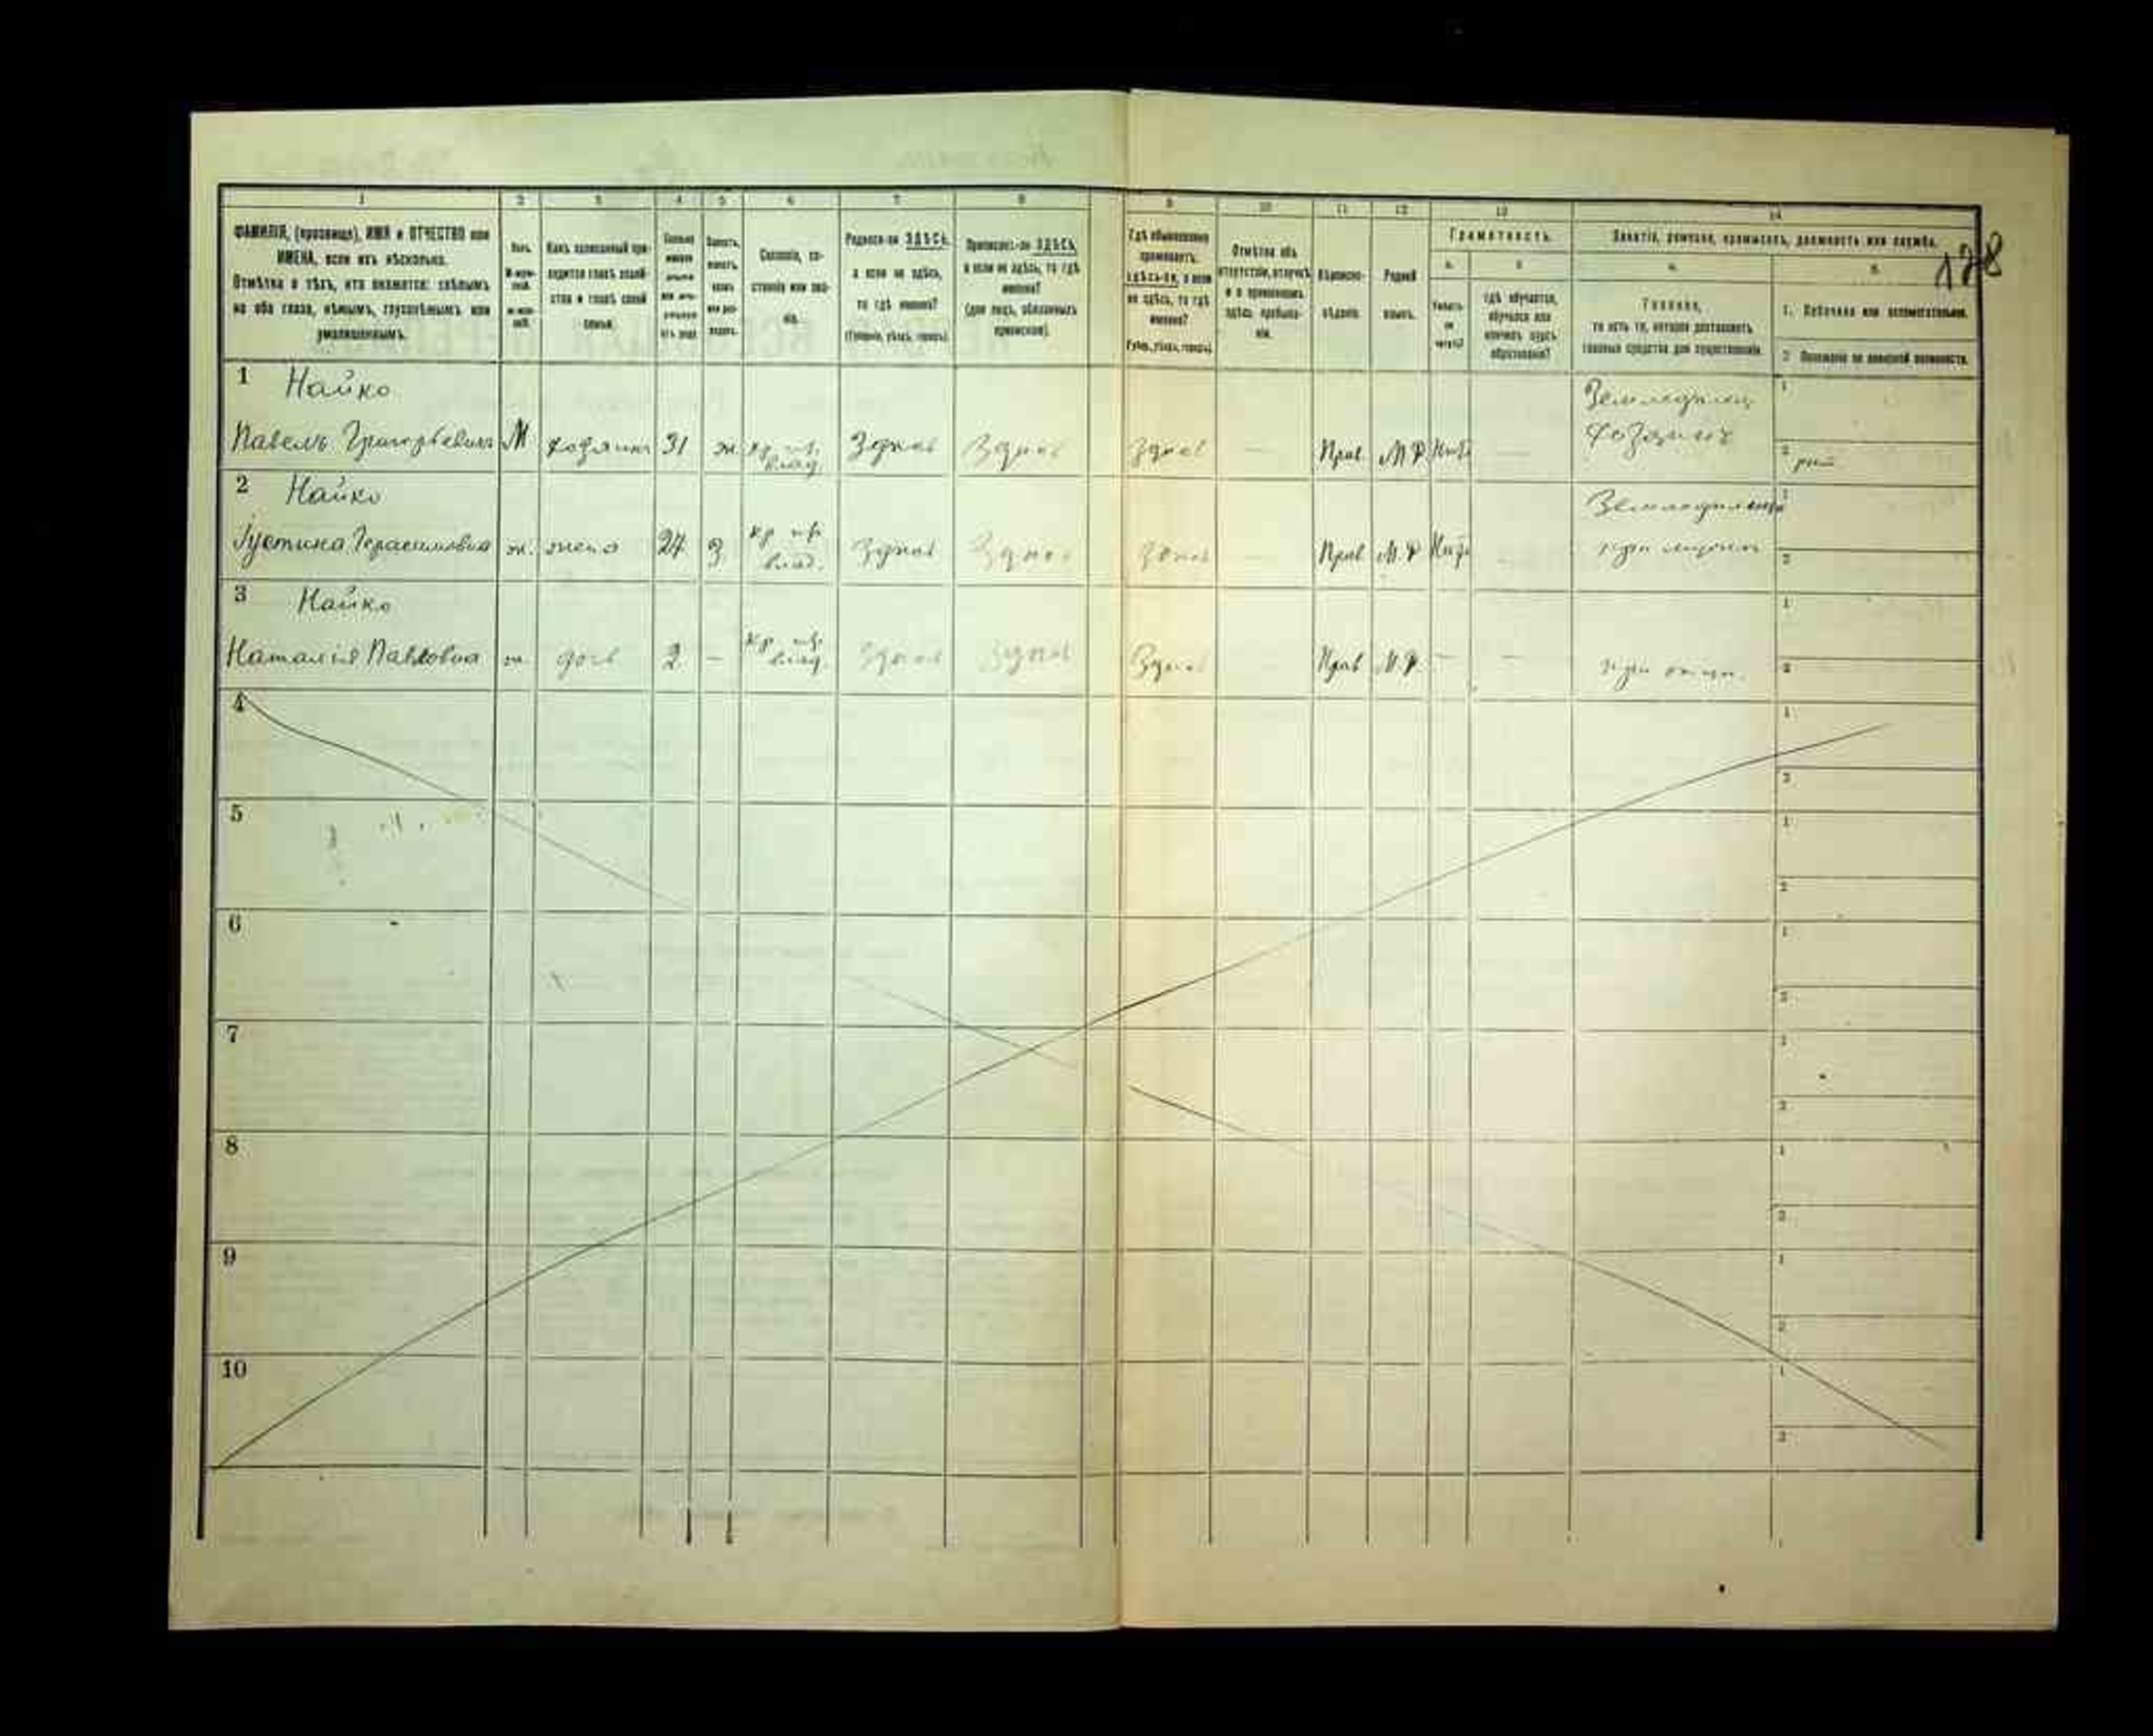 1 2 3 4 5 6 7 8 9 10 11 12 13 14
ФАМИЛІЯ, (прозвище), ИМЯ и ОТЧЕСТВО или
ИМЕНА, если ихъ нѣсколько.
Отмѣтка о тѣхъ, кто окажется: слѣпымъ
на оба глаза, нѣмымъ, глухонѣмымъ или
умалишеннымъ.
Полъ.
Какъ записанный при-
ходится главѣ хозяй-
ства и главѣ своей
семьи.
Сословіе, со-
стояніе или зва-
ніе.
Родился-ли ЗДѢСЬ,
а если не здѣсь,
то гдѣ именно?
(Губернія, уѣздъ, городъ).
Приписанъ-ли ЗДѢСЬ,
а если не здѣсь, то гдѣ
именно?
(для лицъ, обязанныхъ
припискою).
Гдѣ обыкновенно
проживаетъ:
здѣсь-ли, а если
не здѣсь, то гдѣ
именно?
(Губер., уѣздъ, городъ).
Отмѣтка объ
отсутствіи, отлучкѣ
и о временномъ
здѣсь пребыва-
ніи.
Вѣроиспо-
вѣданіе.
Родной
языкъ.
Грамотность.
а. б.
Умѣетъ
ли
читать?
гдѣ обучается,
обучался или
кончилъ курсъ
образованія?
Занятіе, ремесло, промыселъ, должность или служба.
а. б.
Главное,
то есть то, которое доставляетъ
главныя средства для существованія.
1. Побочное или вспомогательное.
2. Положеніе по воинской повинности.
128
1 Найко
Павелъ Григорьевичъ М хозяинъ 31 ж кр. влад. Здѣсь Здѣсь Здѣсь — Прав М.Р. Нѣтъ — 
Земледѣлец
хозяинъ
1
2
2 Найко
Іустина Герасимовна ж. жена 24 З кр. влад. Здѣсь Здѣсь Здѣсь — Прав М.Р. Нѣтъ
при мужѣ
1
2
3 Найко
Наталія Павловна ж. дочь 2 — кр. влад. Здѣсь Здѣсь Здѣсь — Прав М.Р. — —
при отцѣ.
1
2
4
1
2
5
1
2
6
1
2
7
1
2
8
1
2
9
1
2
10
1
2